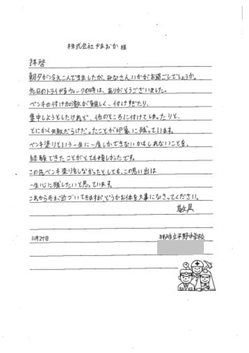 株式会社やまおか 様
拝啓
朝夕が冷えこんできましたが、みなさんいかがお過ごしでしょうか。
先日のトライやるウィークの時は、ありがとうございました。
ペンキの付け加減が難しく、付けすぎたり、
集中しようとしたけれど、他のところに付けてしまったりと、
とにかく大変だった、ことが印象に残っています。
ペンキ塗りという一生に一度しかできないかもしれないことを、
経験できたことがとても嬉しかったです。
この先ペンキ塗りをしなかったとしても、この思い出は
一生心に残したいと思っています。
これから冬に近づいてきますが、どうかお体を大事になさってください。
敬具
11月29日
平野中学校